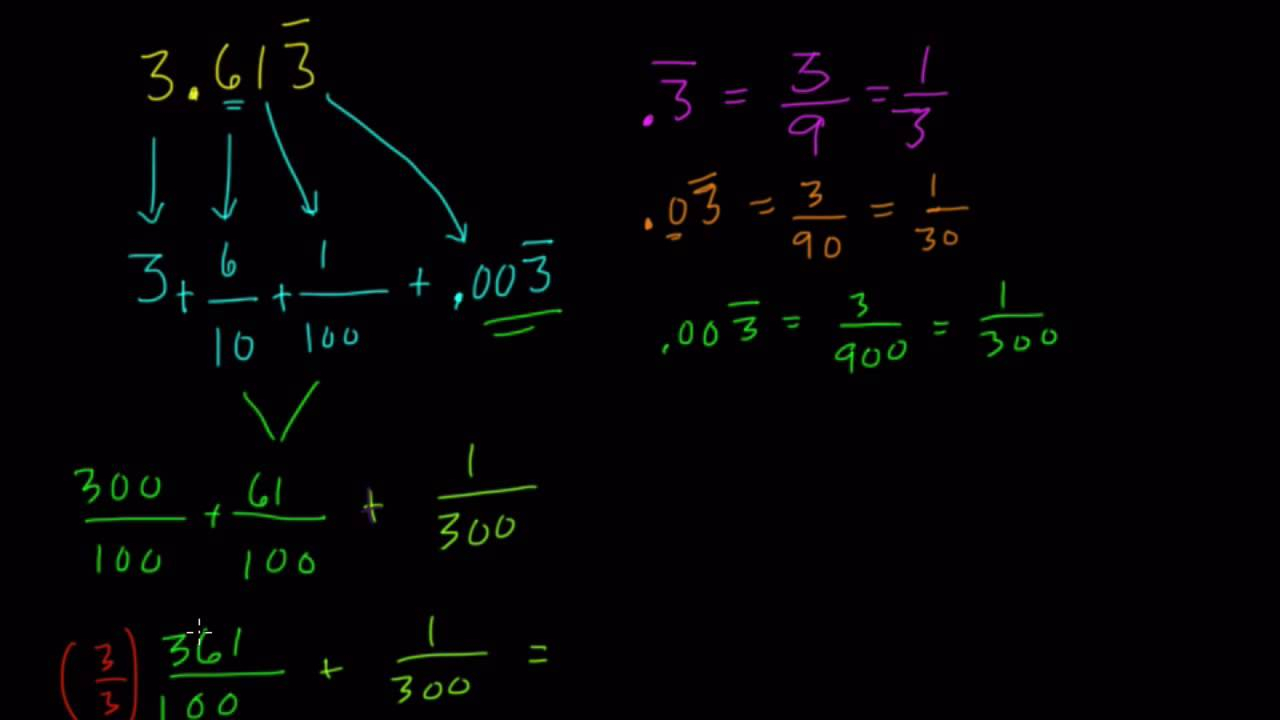 3.613̅
3 + 6/10 + 1/100 + .003̅
300/100 + 61/100 + 1/300
(3/3) 361/100 + 1/300 =
.3̅ = 3/9 = 1/3
.03̅ = 3/90 = 1/30
.003̅ = 3/900 = 1/300